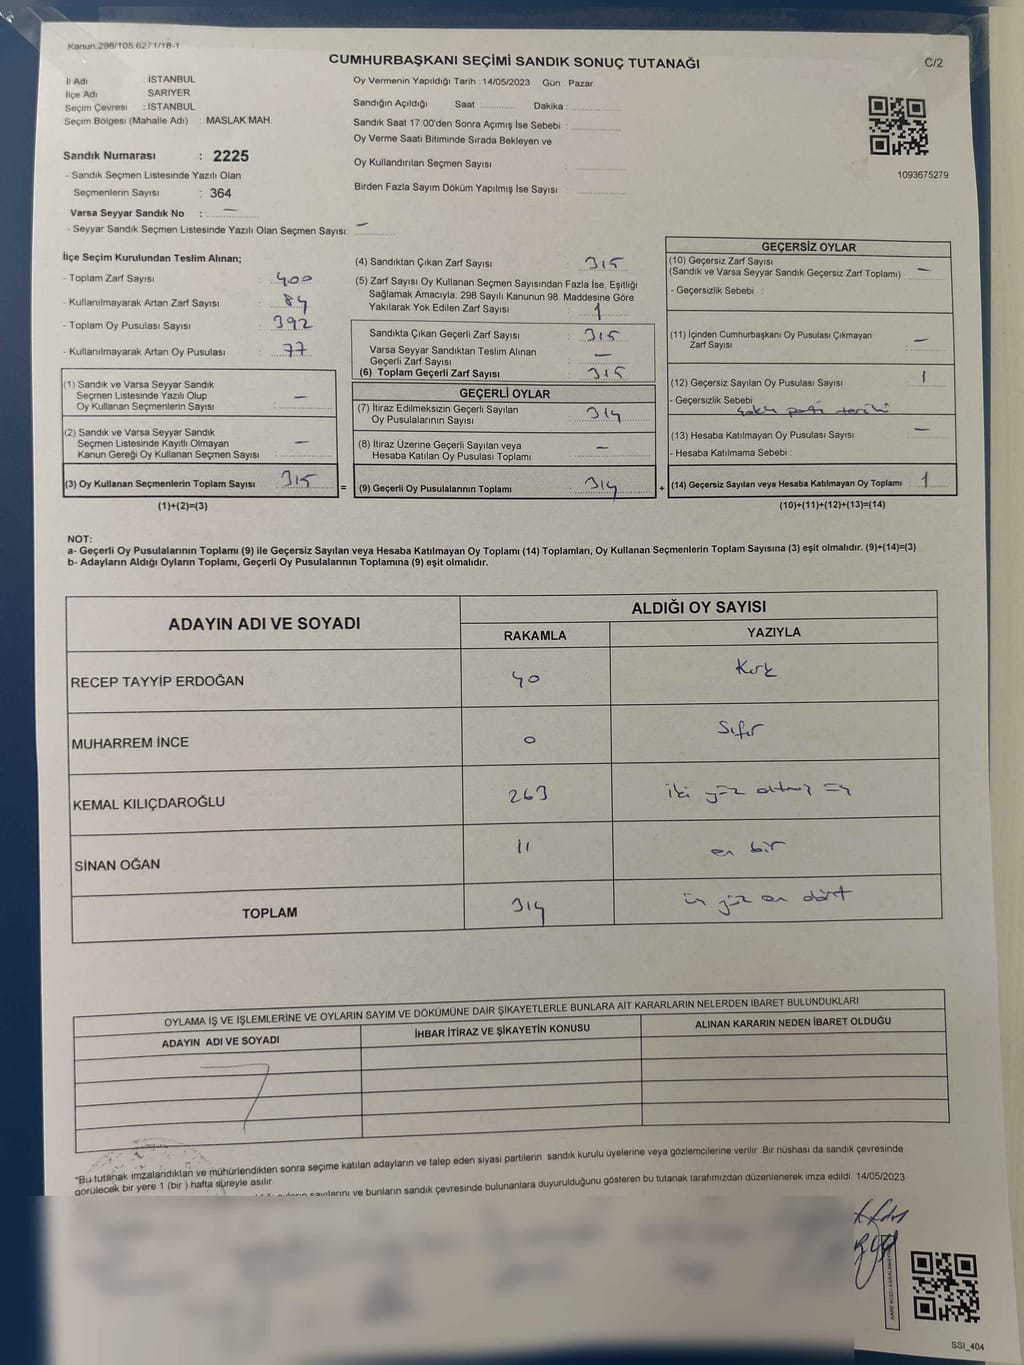 Kanun.298/105.6271/18-1
CUMHURBAŞKANI SEÇİMİ SANDIK SONUÇ TUTANAĞI
C/2
İl Adı : İSTANBUL
İlçe Adı : SARIYER
Seçim Çevresi : İSTANBUL
Seçim Bölgesi (Mahalle Adı) : MASLAK MAH.
Sandık Numarası : 2225
- Sandık Seçmen Listesinde Yazılı Olan
Seçmenlerin Sayısı : 364
Varsa Seyyar Sandık No : —
- Seyyar Sandık Seçmen Listesinde Yazılı Olan Seçmen Sayısı: —
Oy Vermenin Yapıldığı Tarih : 14/05/2023 Gün : Pazar
Sandığın Açıldığı Saat : Dakika :
Sandık Saat 17:00'den Sonra Açımış İse Sebebi :
Oy Verme Saati Bitiminde Sırada Bekleyen ve
Oy Kullandırılan Seçmen Sayısı :
Birden Fazla Sayım Döküm Yapılmış İse Sayısı :
1093675279
İlçe Seçim Kurulundan Teslim Alınan;
- Toplam Zarf Sayısı : 400
- Kullanılmayarak Artan Zarf Sayısı : 84
- Toplam Oy Pusulası Sayısı : 392
- Kullanılmayarak Artan Oy Pusulası : 77
(1) Sandık ve Varsa Seyyar Sandık
Seçmen Listesinde Yazılı Olup
Oy Kullanan Seçmenlerin Sayısı : —
(2) Sandık ve Varsa Seyyar Sandık
Seçmen Listesinde Kayıtlı Olmayan
Kanun Gereği Oy Kullanan Seçmen Sayısı : —
(3) Oy Kullanan Seçmenlerin Toplam Sayısı : 315
(1)+(2)=(3)
(4) Sandıktan Çıkan Zarf Sayısı : 315
(5) Zarf Sayısı Oy Kullanan Seçmen Sayısından Fazla İse, Eşitliği
Sağlamak Amacıyla; 298 Sayılı Kanunun 98. Maddesine Göre
Yakılarak Yok Edilen Zarf Sayısı : 1
Sandıkta Çıkan Geçerli Zarf Sayısı : 315
Varsa Seyyar Sandıktan Teslim Alınan
Geçerli Zarf Sayısı : —
(6) Toplam Geçerli Zarf Sayısı : 315
GEÇERLİ OYLAR
(7) İtiraz Edilmeksizin Geçerli Sayılan
Oy Pusulalarının Sayısı : 314
(8) İtiraz Üzerine Geçerli Sayılan veya
Hesaba Katılan Oy Pusulası Toplamı : —
= (9) Geçerli Oy Pusulalarının Toplamı : 314
GEÇERSİZ OYLAR
(10) Geçersiz Zarf Sayısı
(Sandık ve Varsa Seyyar Sandık Geçersiz Zarf Toplamı) : —
- Geçersizlik Sebebi :
(11) İçinden Cumhurbaşkanı Oy Pusulası Çıkmayan
Zarf Sayısı : —
(12) Geçersiz Sayılan Oy Pusulası Sayısı : 1
- Geçersizlik Sebebi :
(13) Hesaba Katılmayan Oy Pusulası Sayısı : —
- Hesaba Katılmama Sebebi :
+ (14) Geçersiz Sayılan veya Hesaba Katılmayan Oy Toplamı : 1
(10)+(11)+(12)+(13)=(14)
NOT:
a- Geçerli Oy Pusulalarının Toplamı (9) ile Geçersiz Sayılan veya Hesaba Katılmayan Oy Toplamı (14) Toplamları, Oy Kullanan Seçmenlerin Toplam Sayısına (3) eşit olmalıdır. (9)+(14)=(3)
b- Adayların Aldığı Oyların Toplamı, Geçerli Oy Pusulalarının Toplamına (9) eşit olmalıdır.
ADAYIN ADI VE SOYADI ALDIĞI OY SAYISI
RAKAMLA YAZIYLA
RECEP TAYYİP ERDOĞAN 40 Kırk
MUHARREM İNCE 0 Sıfır
KEMAL KILIÇDAROĞLU 263 iki yüz altmış üç
SİNAN OĞAN 11 on bir
TOPLAM 314 üç yüz on dört
OYLAMA İŞ VE İŞLEMLERİNE VE OYLARIN SAYIM VE DÖKÜMÜNE DAİR ŞİKAYETLERLE BUNLARA AİT KARARLARIN NELERDEN İBARET BULUNDUKLARI
ADAYIN ADI VE SOYADI İHBAR İTİRAZ VE ŞİKAYETİN KONUSU ALINAN KARARIN NEDEN İBARET OLDUĞU
*Bu tutanak imzalandıktan ve mühürlendikten sonra seçime katılan adayların ve talep eden siyasi partilerin sandık kurulu üyelerine veya gözlemcilerine verilir. Bir nüshası da sandık çevresinde
görülecek bir yere 1 (bir ) hafta süreyle asılır.
sayılarını ve bunların sandık çevresinde bulunanlara duyurulduğunu gösteren bu tutanak tarafımızdan düzenlenerek imza edildi. 14/05/2023
SSI_404